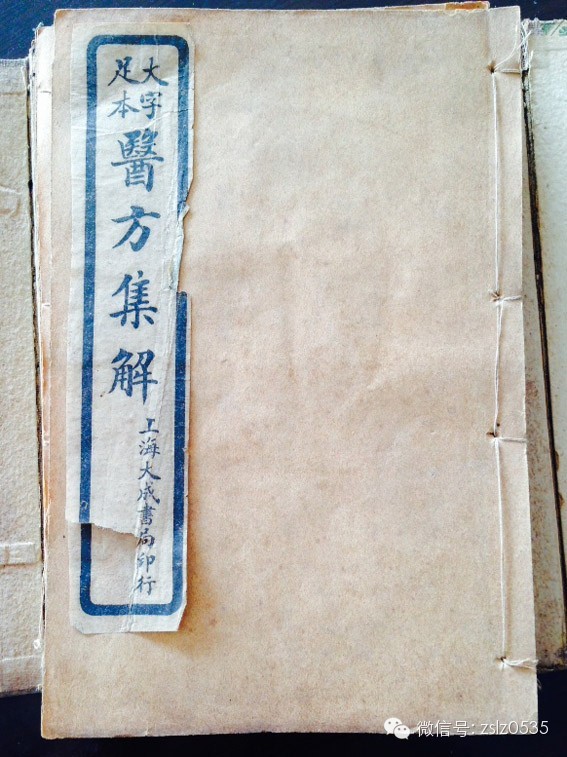 大字
足本
醫方集解
上海大成書局印行
微信号: zslz0535